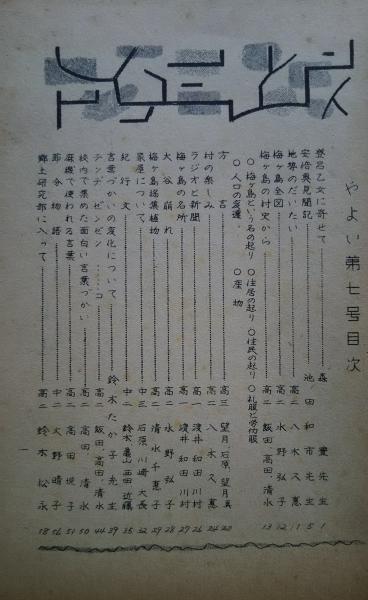 やよい第七号目次
登呂乙女に寄せて 森 豊先生 1
安倍奥見聞記 池田和市先生 5
地界のだいたい 高二 八木久恵 1
梅ヶ島全図 高二 水野弘子 12
梅ヶ島の村史から 高二 飯田、高田、清水 13
○梅ヶ島という名の起り ○住居の起り ○住民の起り ○礼服と労仂服
○人口の変遷 ○産物
方言 高三 望月、石原、望月真 20
村の楽しみ 高二 八木久恵 24
ラジオと新聞 高一 浅井 和田 川村 26
梅ヶ島の名所 高一 浅井 和田 川村 27
大谷崩れ 高二 水野弘子 28
梅ヶ島採集植物 高二 清水千恵子 29
家屋について 中三 石原、川崎、大長 32
紀行文 中二 鈴木 亀山 西田 近藤 35
言葉づかいの変化について 鈴木たか子先生 39
テンデ、ゼンゼン、ココ 高二 飯田 高田 清水 44
校内で集めた面白い言葉づかい 高二 高田、清水 50
麻機で使われる言葉 高二 高田悦子 51
都令物語 中二 大野晴子 56
郷土研究部に入って 高二 鈴木松永 18